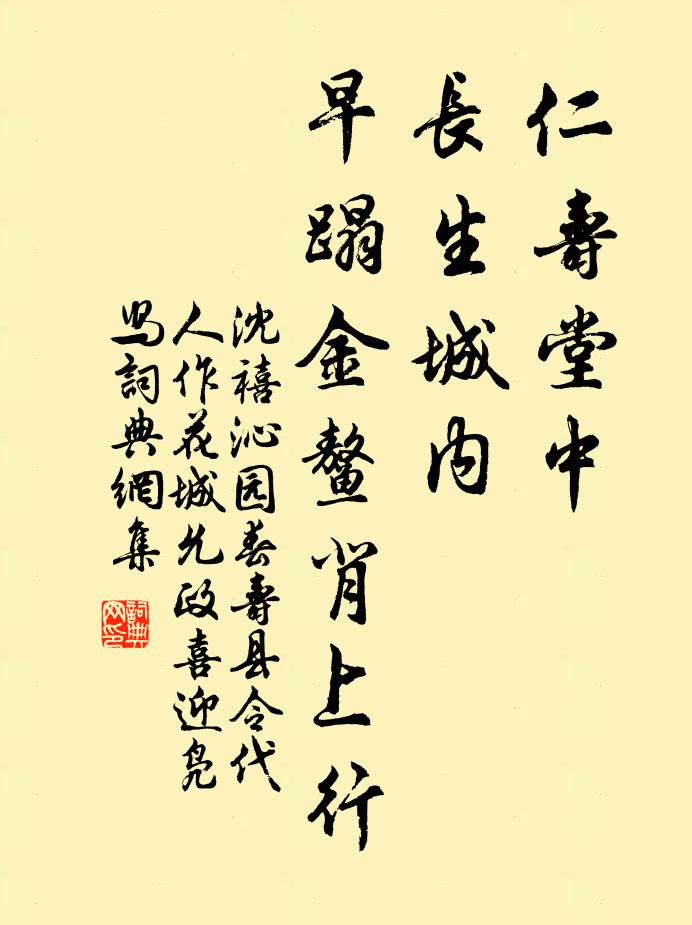 仁壽堂中
長生城内
早蹋金鳌背上行
沈禧沁园春壽县令代
人作花城允政喜迎凫
舄詞典網集
詞典网印